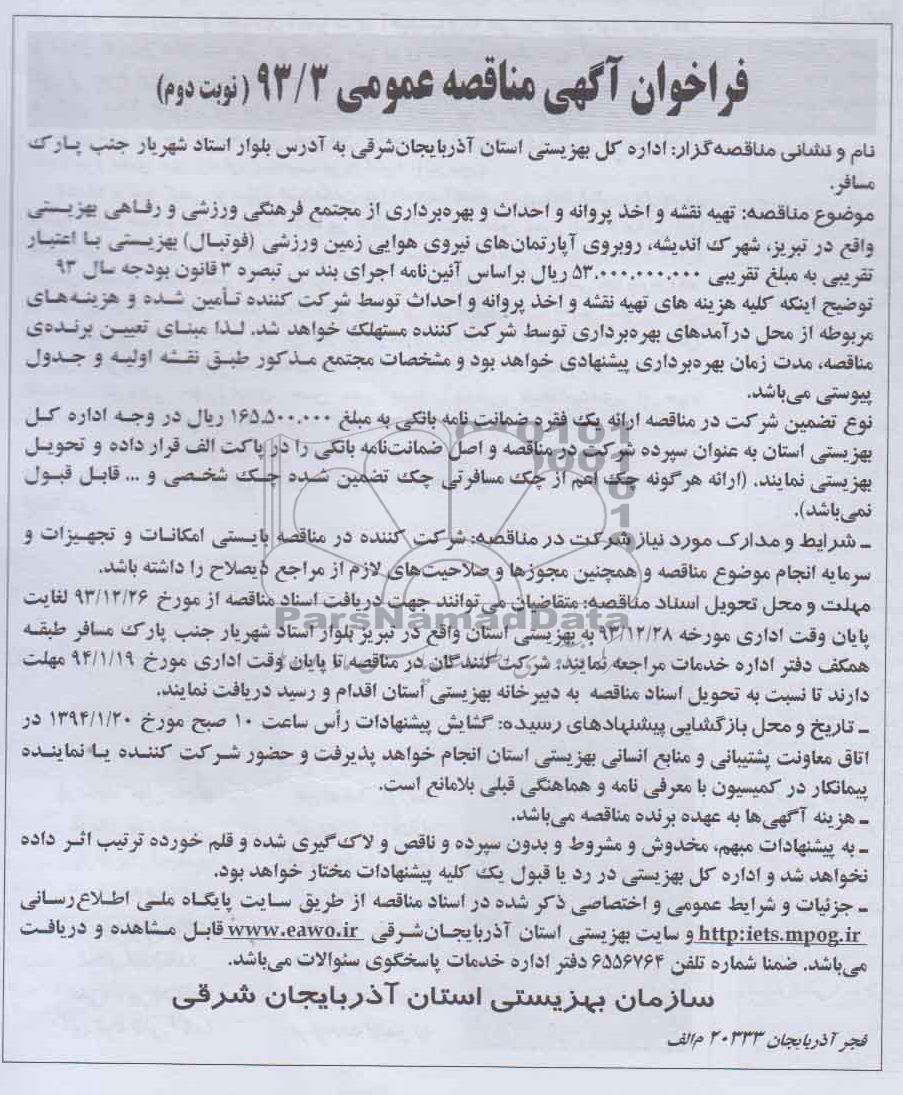 فراخوان آگهی مناقصه عمومی ۹۳/۳ (نوبت دوم)
نام و نشانی مناقصه‌گزار: اداره کل بهزیستی استان آذربایجان‌شرقی به آدرس بلوار استاد شهریار جنب پارک
مسافر.
موضوع مناقصه: تهیه نقشه و اخذ پروانه و احداث و بهره‌برداری از مجتمع فرهنگی ورزشی و رفاهی بهزیستی
واقع در تبریز، شهرک اندیشه، روبروی آپارتمان‌های نیروی هوایی زمین ورزشی (فوتبال) بهزیستی با اعتبار
تقریبی به مبلغ تقریبی ۵۳.۰۰۰.۰۰۰.۰۰۰ ریال براساس آئین‌نامه اجرای بند س تبصره ۳ قانون بودجه سال ۹۳
توضیح اینکه کلیه هزینه های تهیه نقشه و اخذ پروانه و احداث توسط شرکت کننده تأمین شده و هزینه‌های
مربوطه از محل درآمدهای بهره‌برداری توسط شرکت کننده مستهلک خواهد شد. لذا مبنای تعیین برنده‌ی
مناقصه، مدت زمان بهره‌برداری پیشنهادی خواهد بود و مشخصات مجتمع مذکور طبق نقشه اولیه و جدول
پیوستی می‌باشد.
نوع تضمین شرکت در مناقصه ارائه یک فقره ضمانت نامه بانکی به مبلغ ۱۶۵.۵۰۰.۰۰۰ ریال در وجه اداره کل
بهزیستی استان به عنوان سپرده شرکت در مناقصه و اصل ضمانت‌نامه بانکی را در پاکت الف قرار داده و تحویل
بهزیستی نمایند. (ارائه هرگونه چک اعم از چک مسافرتی چک تضمین شده چک شخصی و ... قابل قبول
نمی‌باشد).
ـ شرایط و مدارک مورد نیاز شرکت در مناقصه: شرکت کننده در مناقصه بایستی امکانات و تجهیزات و
سرمایه انجام موضوع مناقصه و همچنین مجوزها و صلاحیت‌های لازم از مراجع ذیصلاح را داشته باشد.
مهلت و محل تحویل اسناد مناقصه: متقاضیان می‌توانند جهت دریافت اسناد مناقصه از مورخ ۹۳/۱۲/۲۶ لغایت
پایان وقت اداری مورخه ۹۳/۱۲/۲۸ به بهزیستی استان واقع در تبریز بلوار استاد شهریار جنب پارک مسافر طبقه
همکف دفتر اداره خدمات مراجعه نمایند؛ شرکت‌کنندگان در مناقصه تا پایان وقت اداری مورخ ۹۴/۱/۱۹ مهلت
دارند تا نسبت به تحویل اسناد مناقصه به دبیرخانه بهزیستی استان اقدام و رسید دریافت نمایند.
ـ تاریخ و محل بازگشایی پیشنهادهای رسیده: گشایش پیشنهادات رأس ساعت ۱۰ صبح مورخ ۱۳۹۴/۱/۲۰ در
اتاق معاونت پشتیبانی و منابع انسانی بهزیستی استان انجام خواهد پذیرفت و حضور شرکت کننده یا نماینده
پیمانکار در کمیسیون با معرفی نامه و هماهنگی قبلی بلامانع است.
ـ هزینه آگهی‌ها به عهده برنده مناقصه می‌باشد.
ـ به پیشنهادات مبهم، مخدوش و مشروط و بدون سپرده و ناقص و لاک‌گیری شده و قلم خورده ترتیب اثر داده
نخواهد شد و اداره کل بهزیستی در رد یا قبول یک کلیه پیشنهادات مختار خواهد بود.
ـ جزئیات و شرایط عمومی و اختصاصی ذکر شده در اسناد مناقصه از طریق سایت پایگاه ملی اطلاع‌رسانی
http:iets.mpog.ir و سایت بهزیستی استان آذربایجان‌شرقی www.eawo.ir قابل مشاهده و دریافت
می‌باشد. ضمنا شماره تلفن ۶۵۵۶۷۶۴ دفتر اداره خدمات پاسخگوی سئوالات می‌باشد.
سازمان بهزیستی استان آذربایجان شرقی
فجر آذربایجان ۲۰۳۳۳ م/الف
ParsNamadData